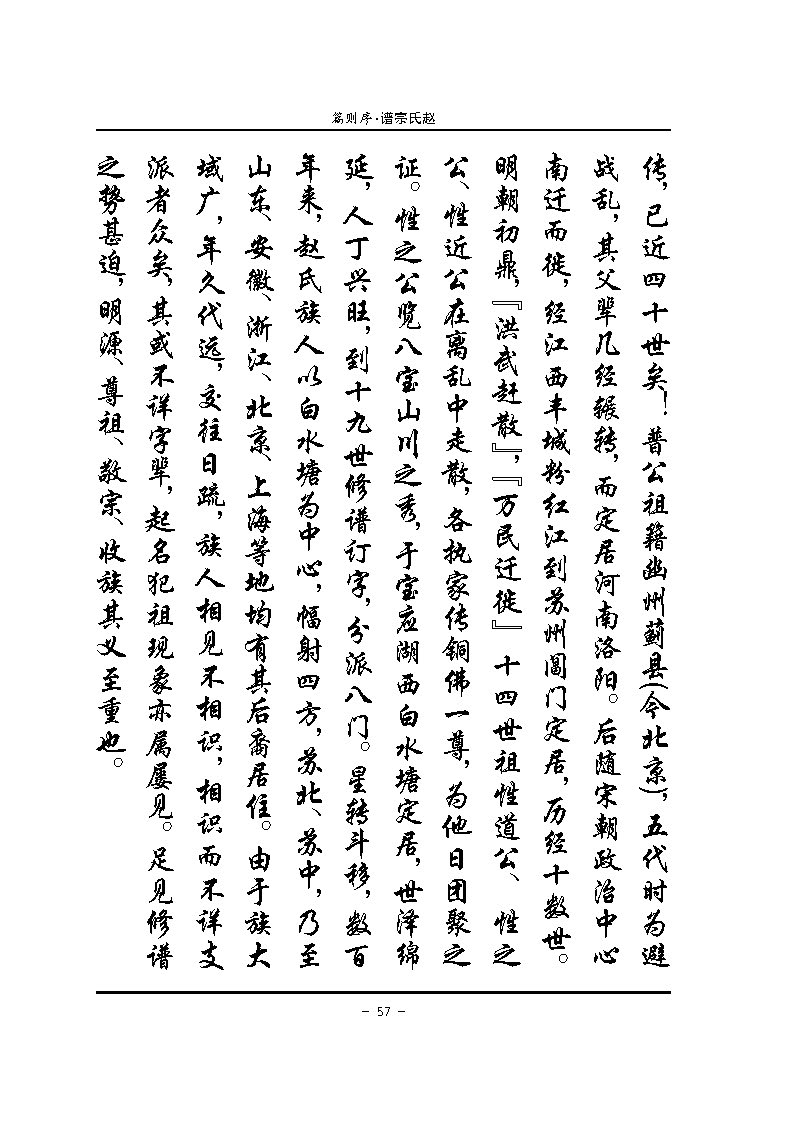 篇则序·谱宗氏赵
传，已近四十世矣！普公祖籍幽州蓟县(今北京)，五代时为避
战乱，其父辈几经辗转，而定居河南洛阳。后随宋朝政治中心
南迁而徙，经江西丰城粉红江到苏州阊门定居，历经十数世。
明朝初鼎，『洪武赶散』，『万民迁徙』十四世祖性道公、性之
公、性近公在离乱中走散，各执家传铜佛一尊，为他日团聚之
证。性之公览八宝山川之秀，于宝应湖西白水塘定居，世泽绵
延，人丁兴旺，到十九世修谱订字，分派八门。星转斗移，数百
年来，赵氏族人以白水塘为中心，幅射四方，苏北、苏中，乃至
山东、安徽、浙江、北京、上海等地均有其后裔居住。由于族大
域广，年久代远，交往日疏，族人相见不相识，相识而不详支
派者众矣，其或不详字辈，起名犯祖现象亦属屡见。足见修谱
之势甚迫，明源、尊祖、敬宗、收族其义至重也。
- 57 -